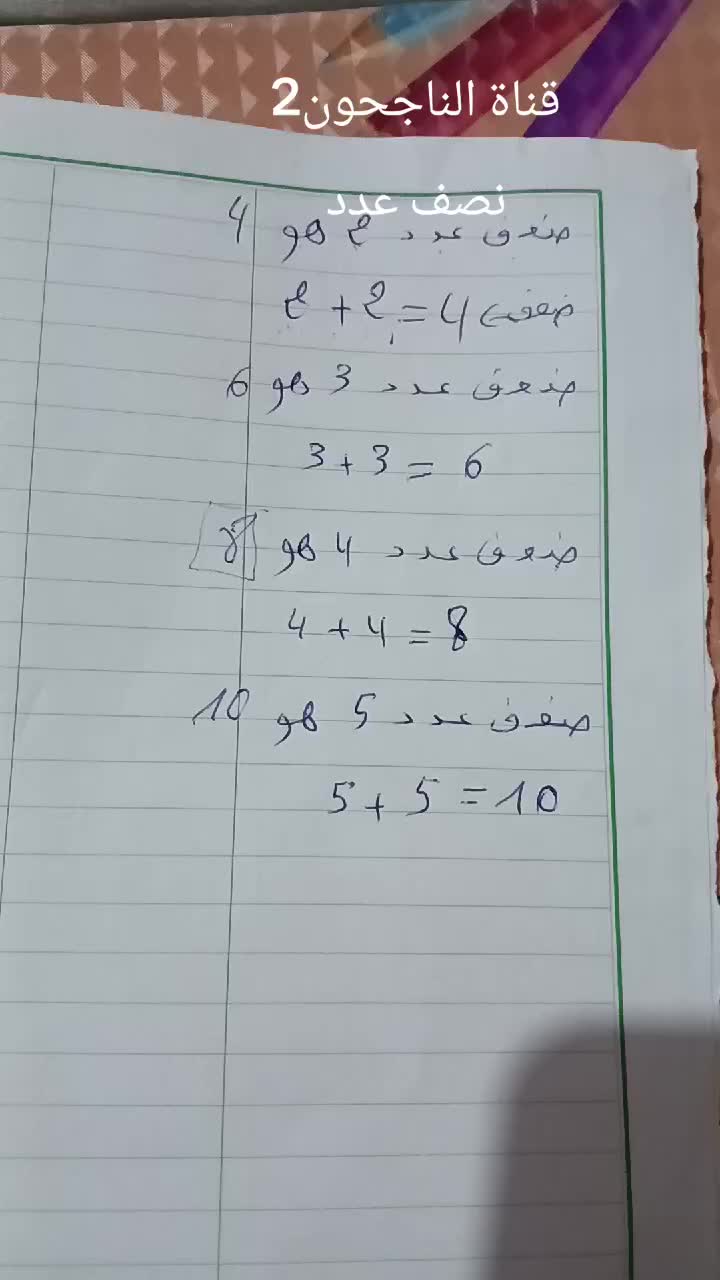 قناة الناجحون2
نصف عدد
ضعف عدد 2 هو 4
ضعف 2 + 2 = 4
ضعف عدد 3 هو 6
3 + 3 = 6
ضعف عدد 4 هو 8
4 + 4 = 8
ضعف عدد 5 هو 10
5 + 5 = 10